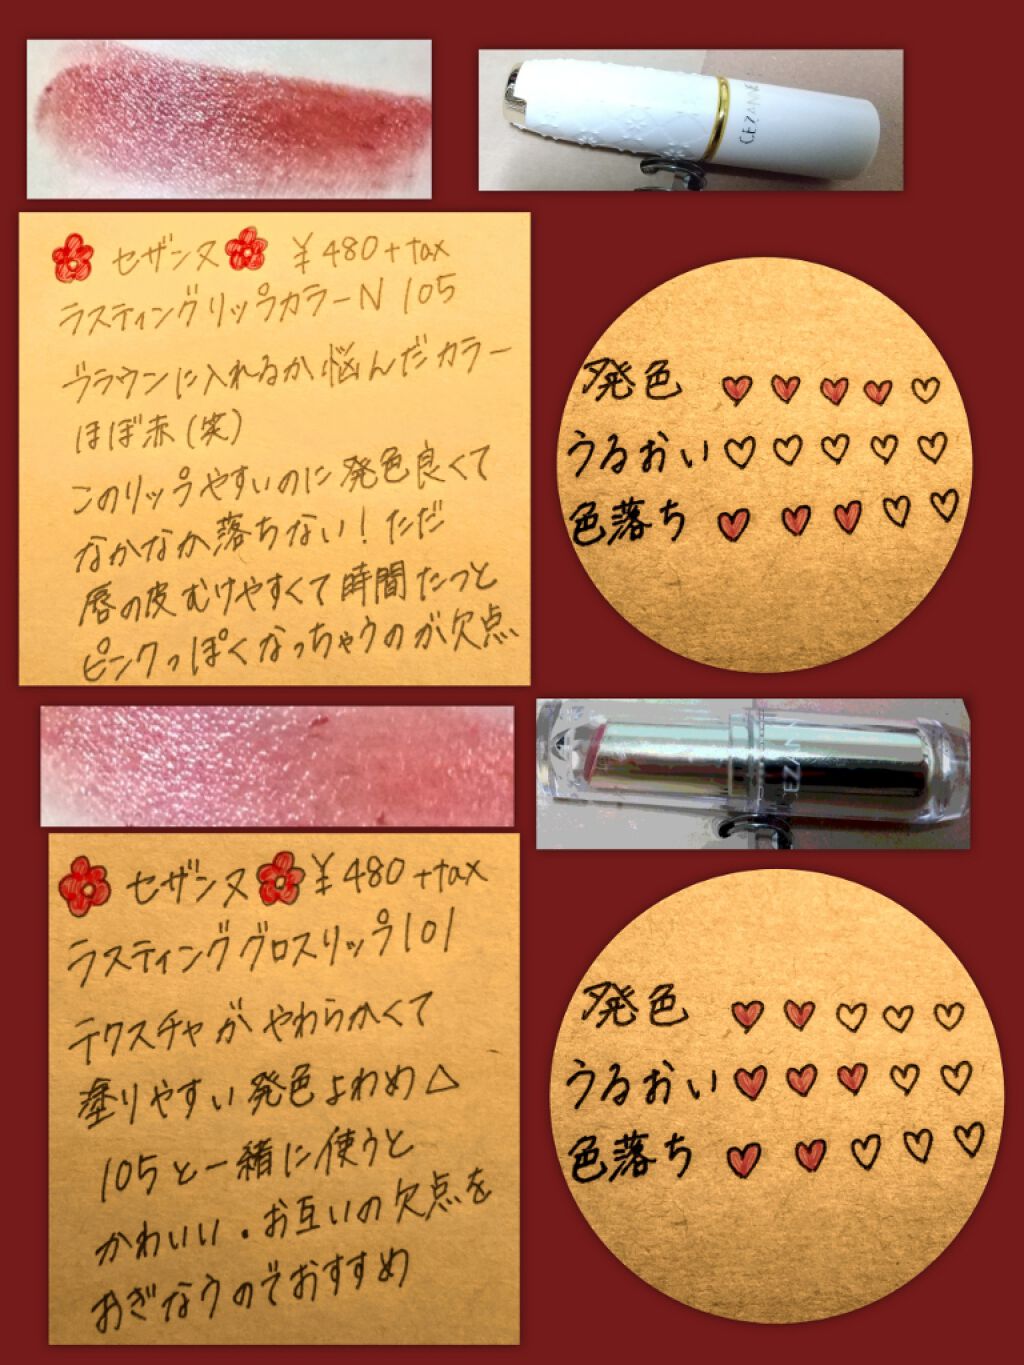 CEZANNE
セザンヌ ¥480+tax
ラスティングリップカラーN 105
ブラウンに入れるか悩んだカラー
ほぼ赤(笑)
このリップやすいのに発色良くて
なかなか落ちない!ただ
唇の皮むけやすくて時間たつと
ピンクっぽくなっちゃうのが欠点
発色 ♥♥♥♥♡
うるおい♡♡♡♡♡
色落ち ♥♥♥♡♡
CEZANN
セザンヌ ¥480+tax
ラスティンググロスリップ101
テクスチャがやわらかくて
塗りやすい発色よわめ△
105と一緒に使うと
かわいい。お互いの欠点を
おぎなうのでおすすめ
発色 ♥♥♡♡♡
うるおい♥♥♥♡♡
色落ち ♥♥♡♡♡